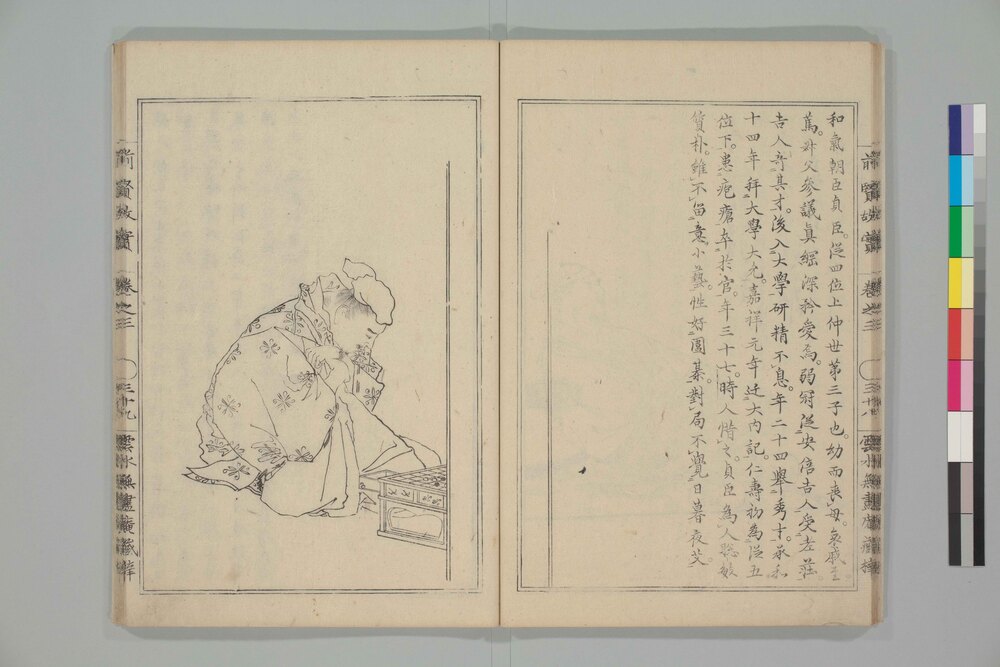 和氣朝臣貞臣。從四位上仲世第三子也。幼而喪母。哀戚至
篤。叔父參議真綱深矜愛焉。弱冠從史信吉人受老莊。
吉人奇其才。後入大學研精不息。年二十四舉秀才。承和
十四年拜大學大允。嘉祥元年迁大内記。仁壽初為從五
位下。患疱瘡卒於官。年三十七。時人惜之。貞臣為人聡敏
質朴。雖不留意小藝。性好圍碁。對局不覺日暮夜艾
前賢故實
卷之三
三十八
雲水無盡庵藏
前賢故實
卷之三
三十九
雲水無盡庵藏